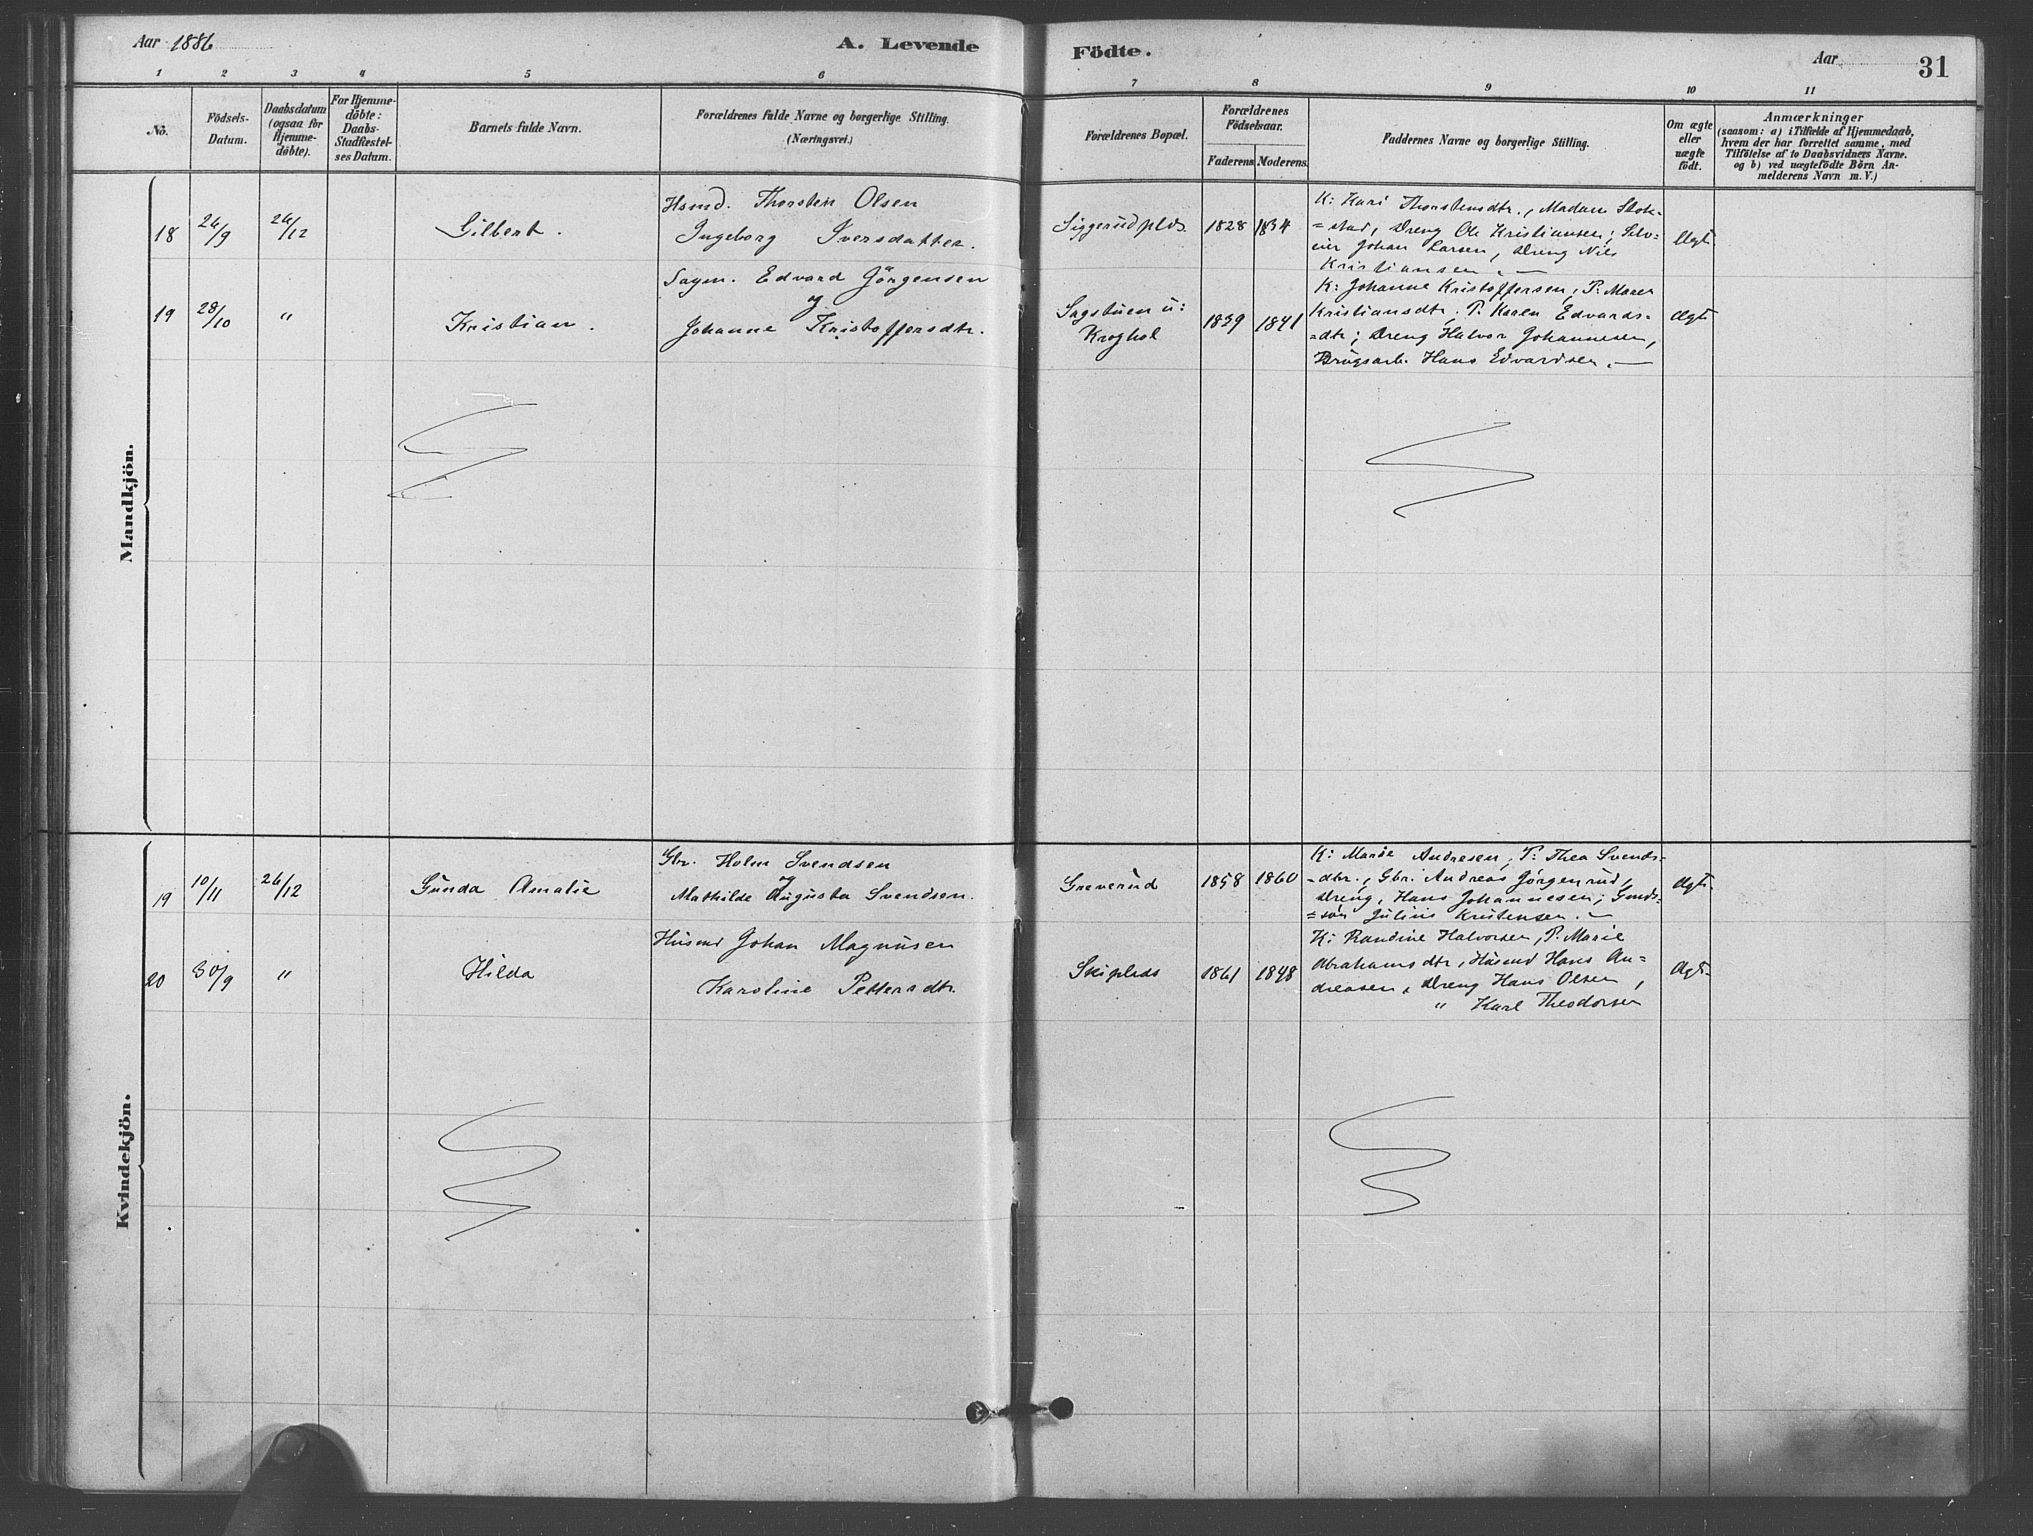 Aar 1886
A. Levende Födte.
Aar
31
1 2 3 4 5 6 7 8 9 10 11
No.
Födsels-
Datum.
Daabsdatum
(ogsaa for
Hjemme-
döbte).
For Hjemme-
döbte:
Daabs-
Stadfæstel-
ses Datum.
Barnets fulde Navn.
Forældrenes fulde Navne og borgerlige Stilling.
(Næringsvei.)
Forældrenes Bopæl.
Forældrenes
Födselsaar.
Faderens
Moderens.
Faddernes Navne og borgerlige Stilling.
Om ægte
eller
uægte
født.
Anmærkninger
(saasom: a) i Tilfælde af Hjemmedaab,
hvem der har forrettet samme, med
Tilföielse af to Daabsvidners Navne.
og b) ved uægtefödte Börn An-
melderens Navn m. V.)
Mandkjön.
18
26/9
26/12
Gilbert.
Hsmd. Thorsten Olsen
Ingeborg Iversdatter.
Siggerudplds
1828
1834
K: Kari Thorstensdtr., Madam Stok-
=stad, Dreng Ole Kristiansen; Selv-
eier Johan Larsen, Dreng Nils
Kristiansen.
Ægt.
19
28/10
"
Kristian.
Sagm. Edvard Jörgensen
Johanne Kristoffersdtr.
Sagstuen u:
Kroghol
1839
1841
K: Johanne Kristoffersen, P: Maren
Kristiansdtr, P. Karen Edvards-
=dtr; Dreng Halvor Johannesen,
Brugsarb. Hans Edvardsen.
Ægt.
Kvindekjön.
19
10/11
26/12
Gunda Amalie
Gbr. Holm Svendsen
Mathilde Augusta Svendsen.
Greverud
1858
1860
K: Marie Andresen, P: Thea Svends-
=dtr., Gbr. Andreas Jørgenrud,
Dreng, Hans Johannesen; Gmds-
=søn Julius Kristensen.
Ægt.
20
30/9
"
Hilda
Husmd Johan Magnusen
Karoline Pettersdtr.
Skiplads
1861
1848
K: Randine Halvorsen, P. Marie
Abrahamsdtr, Husmd Hans An=
dreasen, Dreng Hans Olsen,
" Karl Theodorsen
Ægt.